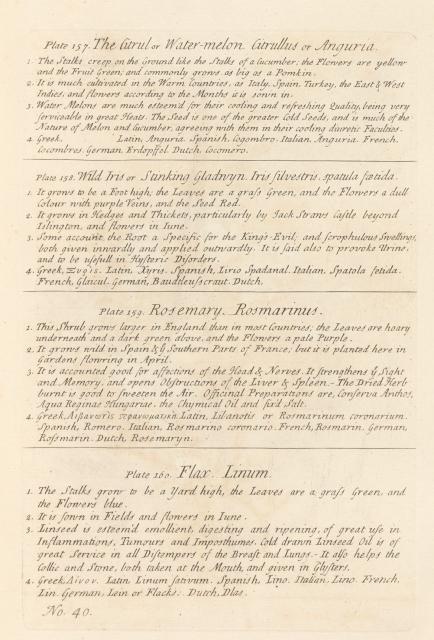 Plate 157. The Citrul or Water-melon Citrullus or Anguria.
1. The Stalks creep on the Ground like the Stalks of a Cucumber; the Flowers are yellow
and the Fruit Green; and commonly grows as big as a Pomkin.
2. It is much cultivated in the Warm Countries, as Italy, Spain, Turkey, the East & West
Indies, and flowers according to the Months it is sown in.
3. Water Melons are much esteem'd for their cooling and refreshing Quality, being very
serviceable in great Heats. The Seed is one of the greater Cold Seeds, and is much of the
Nature of Melon and Cucumber, agreeing with them in their cooling diuretic Faculties.
4. Greek, Latin, Anguria. Spanish, Cogombro. Italian, Anguria. French,
Cocombres. German, Erdopffel. Dutch, Cocomero.
Plate 158. Wild Iris or Stinking Gladwyn. Iris silvestris. spatula fœtida.
1. It grows to be a Foot high; the Leaves are a grass Green, and the Flowers a dull
Colour with purple Veins, and the Seed Red.
2. It grows in Hedges and Thickets, particularly by Jack Straws Castle beyond
Islington, and flowers in Iune.
3. Some account the Root a Specific for the Kings-Evil; and scrophulous Swellings,
both given inwardly and applied outwardly. It is said also to provoke Urine,
and to be usefull in Hysteric Disorders.
4. Greek, Ξυρὶς. Latin, Xyris. Spanish, Lirio Spadanal. Italian, Spatola fetida.
French, Glaicul. German, Dutch.
Plate 159. Rosemary. Rosmarinus.
1. This Shrub grows larger in England than in most Countries; the Leaves are hoary
underneath and a dark green above, and the Flowers a pale Purple.
2. It grows wild in Spain & ye Southern Parts of France; but it is planted here in
Gardens flowring in April.
3. It is accounted good for affections of the Head & Nerves. It strengthens ye Sight
and Memory, and opens Obstructions of the Liver & Spleen. – The Dried Herb
burnt is good to sweeten the Air. Officinal Preparations are, Conserva Anthos,
Aqua Reginæ Hungariæ, the Chymical Oil and fix'd Salt.
4. Greek, Λιβανωτὶς Latin, Libanotis or Rosmarinum coronarium.
Spanish, Romero. Italian, Rosmarino coronario. French, Rosmarin. German,
Rossmarin. Dutch, Rosemaryn.
Plate 160. Flax. Linum.
1. The Stalks grow to be a Yard high, the Leaves are a grass Green, and
the Flowers blue.
2. It is sown in Fields and flowers in Iune.
3. Linseed is esteem'd emollient, digesting and ripening, of great use in
Inflammations, Tumours and Imposthumes. Cold drawn Linseed Oil is of
great Service in all Distempers of the Breast and Lungs. – It also helps the
Collic and Stone, both taken at the Mouth, and given in Glysters.
4. Greek, Λίνον. Latin, Linum sativum. Spanish, Lino. Italian, Lino. French,
Lin. German, Lein or Flacks. Dutch, Dlas.
No. 40.